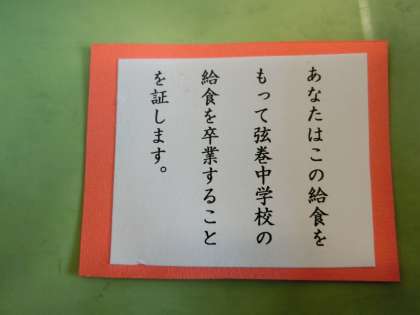 あなたはこの給食を
もって弦巻中学校の
給食を卒業すること
を証します。